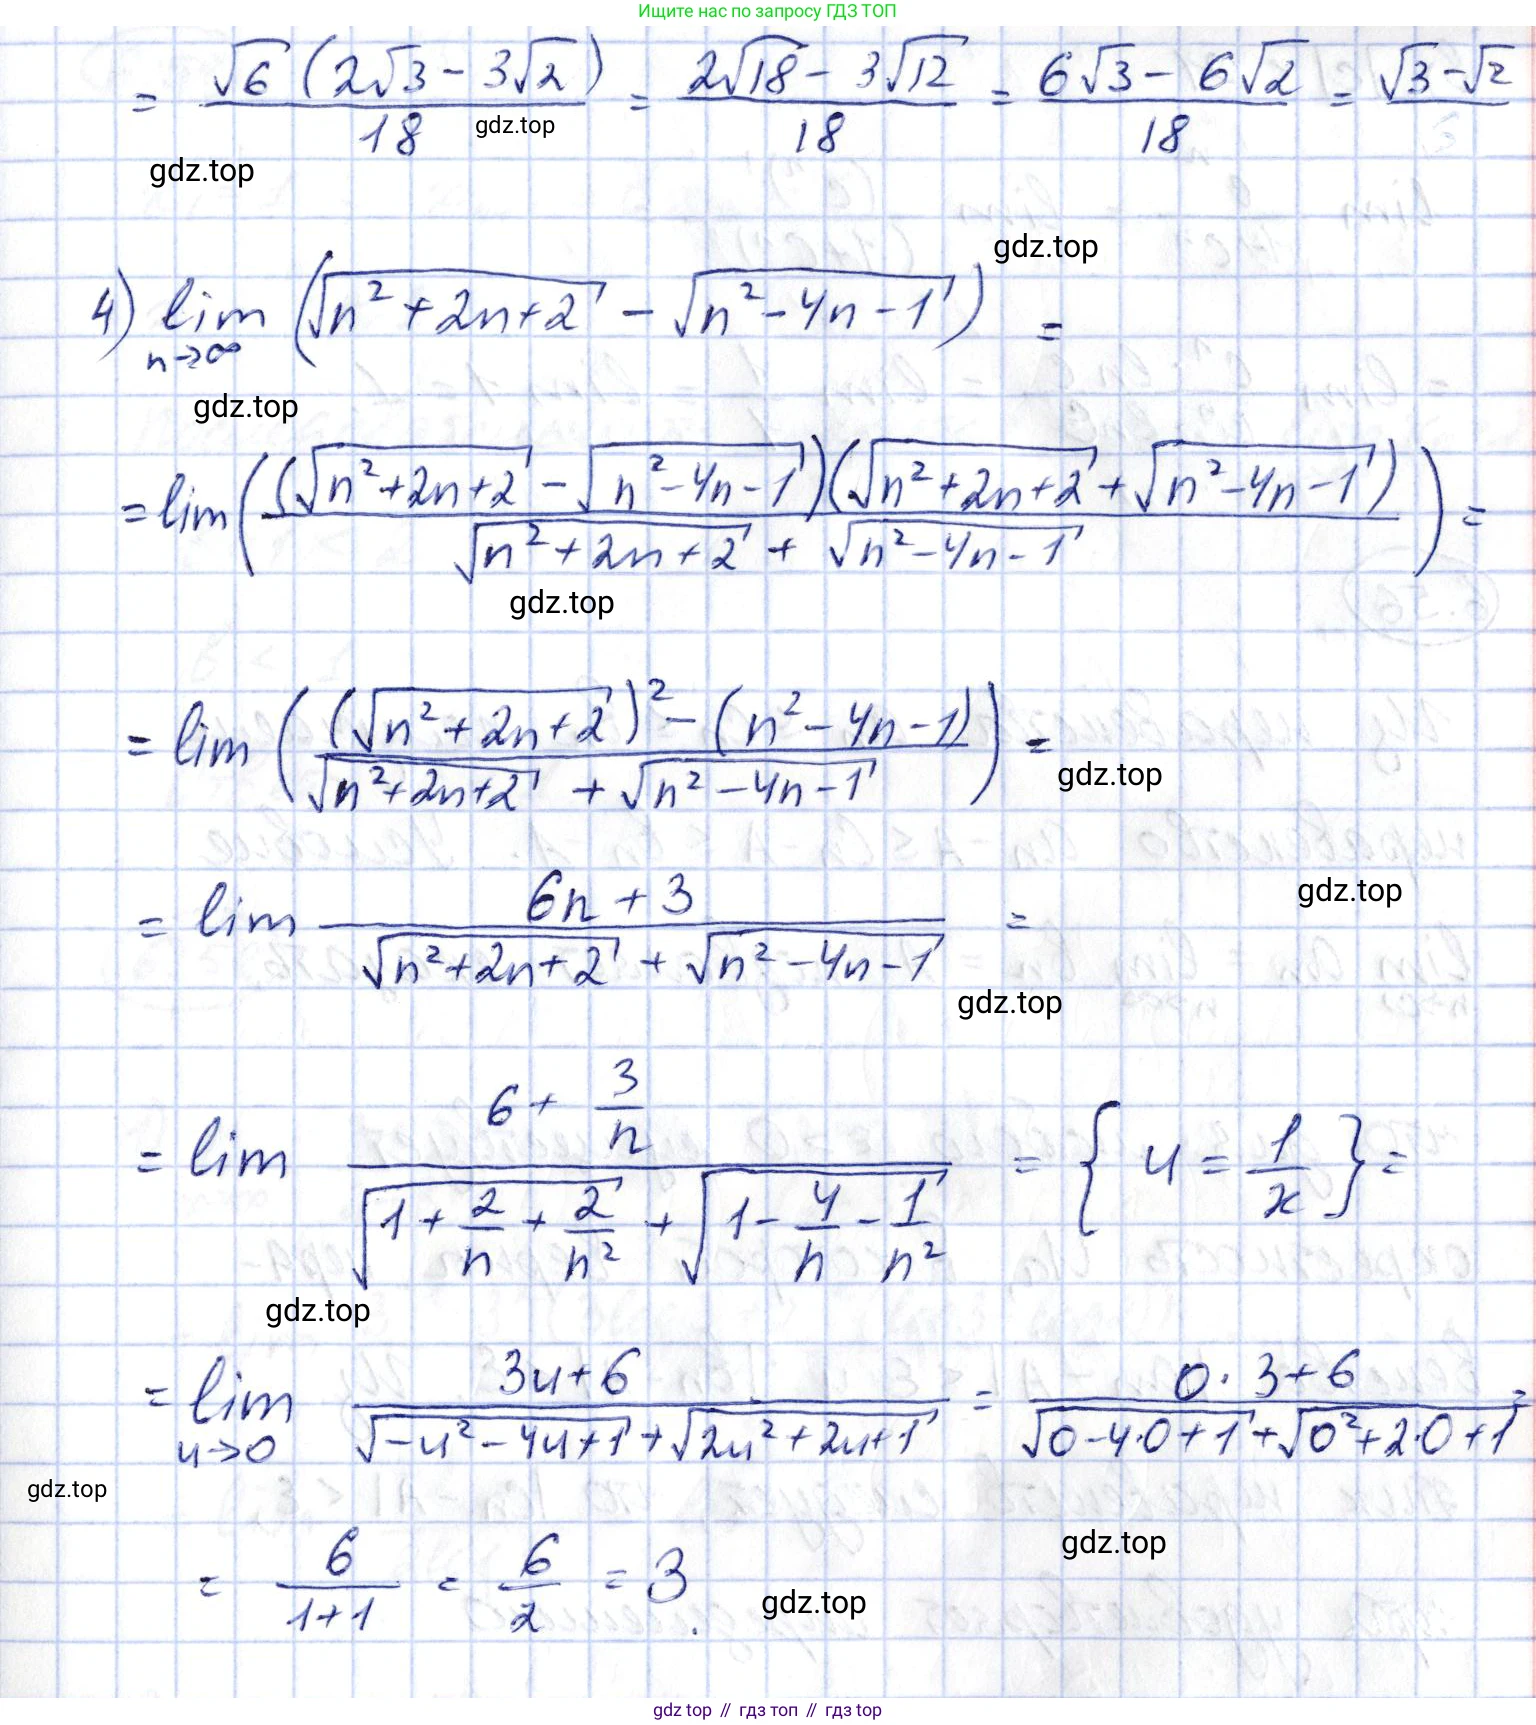 Ищите нас по запросу ГДЗ ТОП
= √6 (2√3 - 3√2) / 18 = (2√18 - 3√12) / 18 = (6√3 - 6√2) / 18 = (√3 - √2) /
gdz.top
gdz.top
gdz.top
4) lim n→∞ (√(n² + 2n + 2) - √(n² - 4n - 1)) =
gdz.top
= lim ( (√(n² + 2n + 2) - √(n² - 4n - 1)) (√(n² + 2n + 2) + √(n² - 4n - 1)) / (√(n² + 2n + 2) + √(n² - 4n - 1)) ) =
gdz.top
= lim ( ((√(n² + 2n + 2))² - (n² - 4n - 1)) / (√(n² + 2n + 2) + √(n² - 4n - 1)) ) =
gdz.top
gdz.top
= lim (6n + 3) / (√(n² + 2n + 2) + √(n² - 4n - 1)) =
gdz.top
= lim (6 + 3/n) / (√(1 + 2/n + 2/n²) + √(1 - 4/n - 1/n²)) = { u = 1/x } =
gdz.top
= lim u→0 (3u + 6) / (√(-u² - 4u + 1) + √(2u² + 2u + 1)) = (0 · 3 + 6) / (√(0 - 4·0 + 1) + √(0² + 2·0 + 1)) =
gdz.top
gdz.top
= 6 / (1 + 1) = 6/2 = 3.
gdz.top
gdz top // гдз топ // гдз top